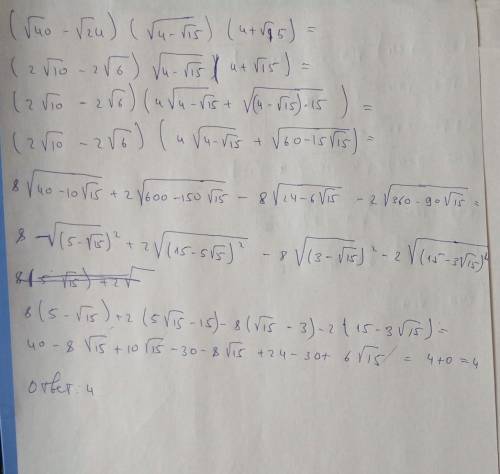 (√40 - √24) (√(4-√15)) (4+√15) =
(2√10 - 2√6) √(4-√15) (4+√15) =
(2√10 - 2√6) (4√(4-√15) + √((4-√15)·15)) =
(2√10 - 2√6) (4√(4-√15) + √(60-15√15)) =
8√(40-10√15) + 2√(600-150√15) - 8√(24-6√15) - 2√(360-90√15) =
8√((5-√15)²) + 2√((15-5√15)²) - 8√((3-√15)²) - 2√((15-3√15)²)
8(5-√15) + 2(5√15-15) - 8(√15-3) - 2(15-3√15) =
40 - 8√15 + 10√15 - 30 - 8√15 + 24 - 30 + 6√15 = 4+0 = 4
Ответ: 4